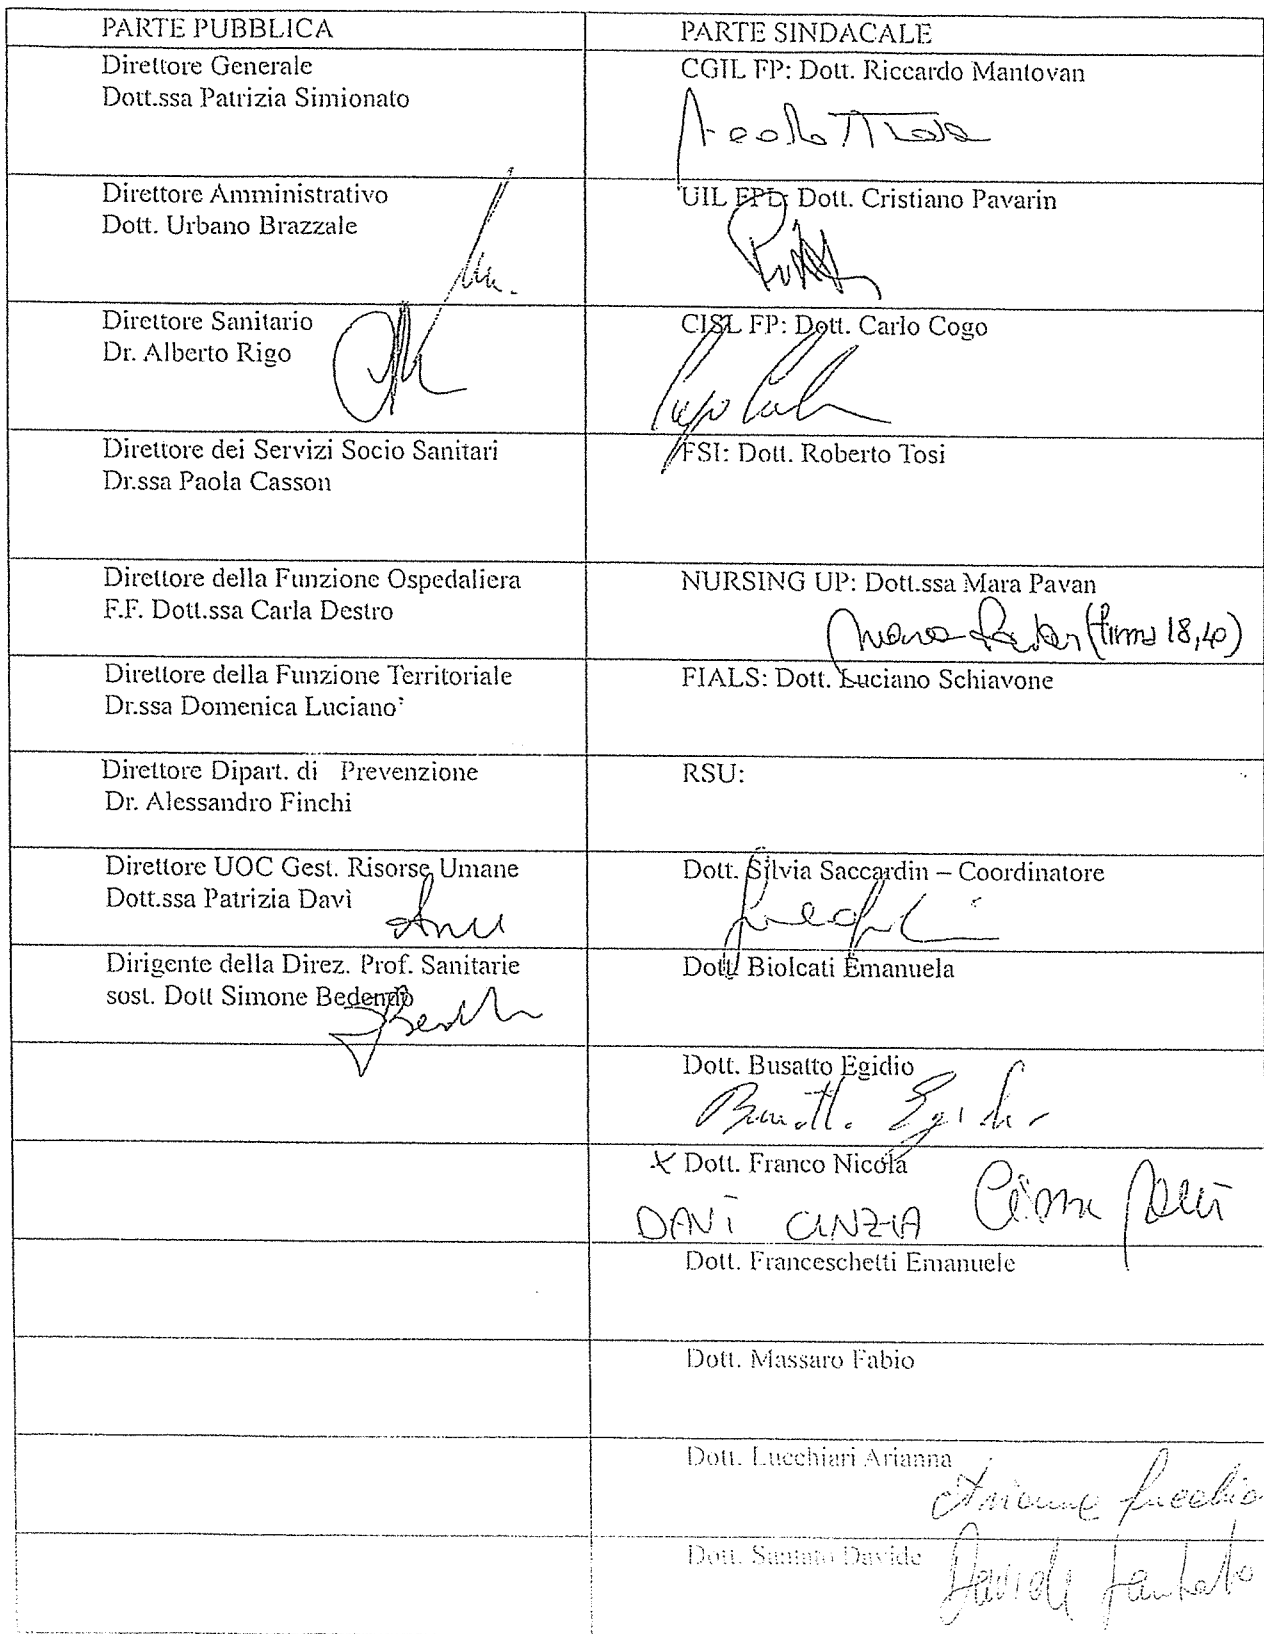 PARTE PUBBLICA
PARTE SINDACALE
Direttore Generale
Dott.ssa Patrizia Simionato
CGIL FP: Dott. Riccardo Mantovan
Direttore Amministrativo
Dott. Urbano Brazzale
UIL FPL: Dott. Cristiano Pavarin
Direttore Sanitario
Dr. Alberto Rigo
CISL FP: Dott. Carlo Cogo
Direttore dei Servizi Socio Sanitari
Dr.ssa Paola Casson
FSI: Dott. Roberto Tosi
Direttore della Funzione Ospedaliera
F.F. Dott.ssa Carla Destro
NURSING UP: Dott.ssa Mara Pavan
(firma 18,40)
Direttore della Funzione Territoriale
Dr.ssa Domenica Luciano
FIALS: Dott. Luciano Schiavone
Direttore Dipart. di Prevenzione
Dr. Alessandro Finchi
RSU:
Direttore UOC Gest. Risorse Umane
Dott.ssa Patrizia Davì
Dott. Silvia Saccardin – Coordinatore
Dirigente della Direz. Prof. Sanitarie
sost. Dott Simone Bedendo
Dott. Biolcati Emanuela
Dott. Busatto Egidio
Busatto Egidio
x Dott. Franco Nicola
DAVÌ CINZIA Cinzia Davì
Dott. Franceschetti Emanuele
Dott. Massaro Fabio
Dott. Lucchiari Arianna
Arianna
Dott. Santato Davide
Davide Santato